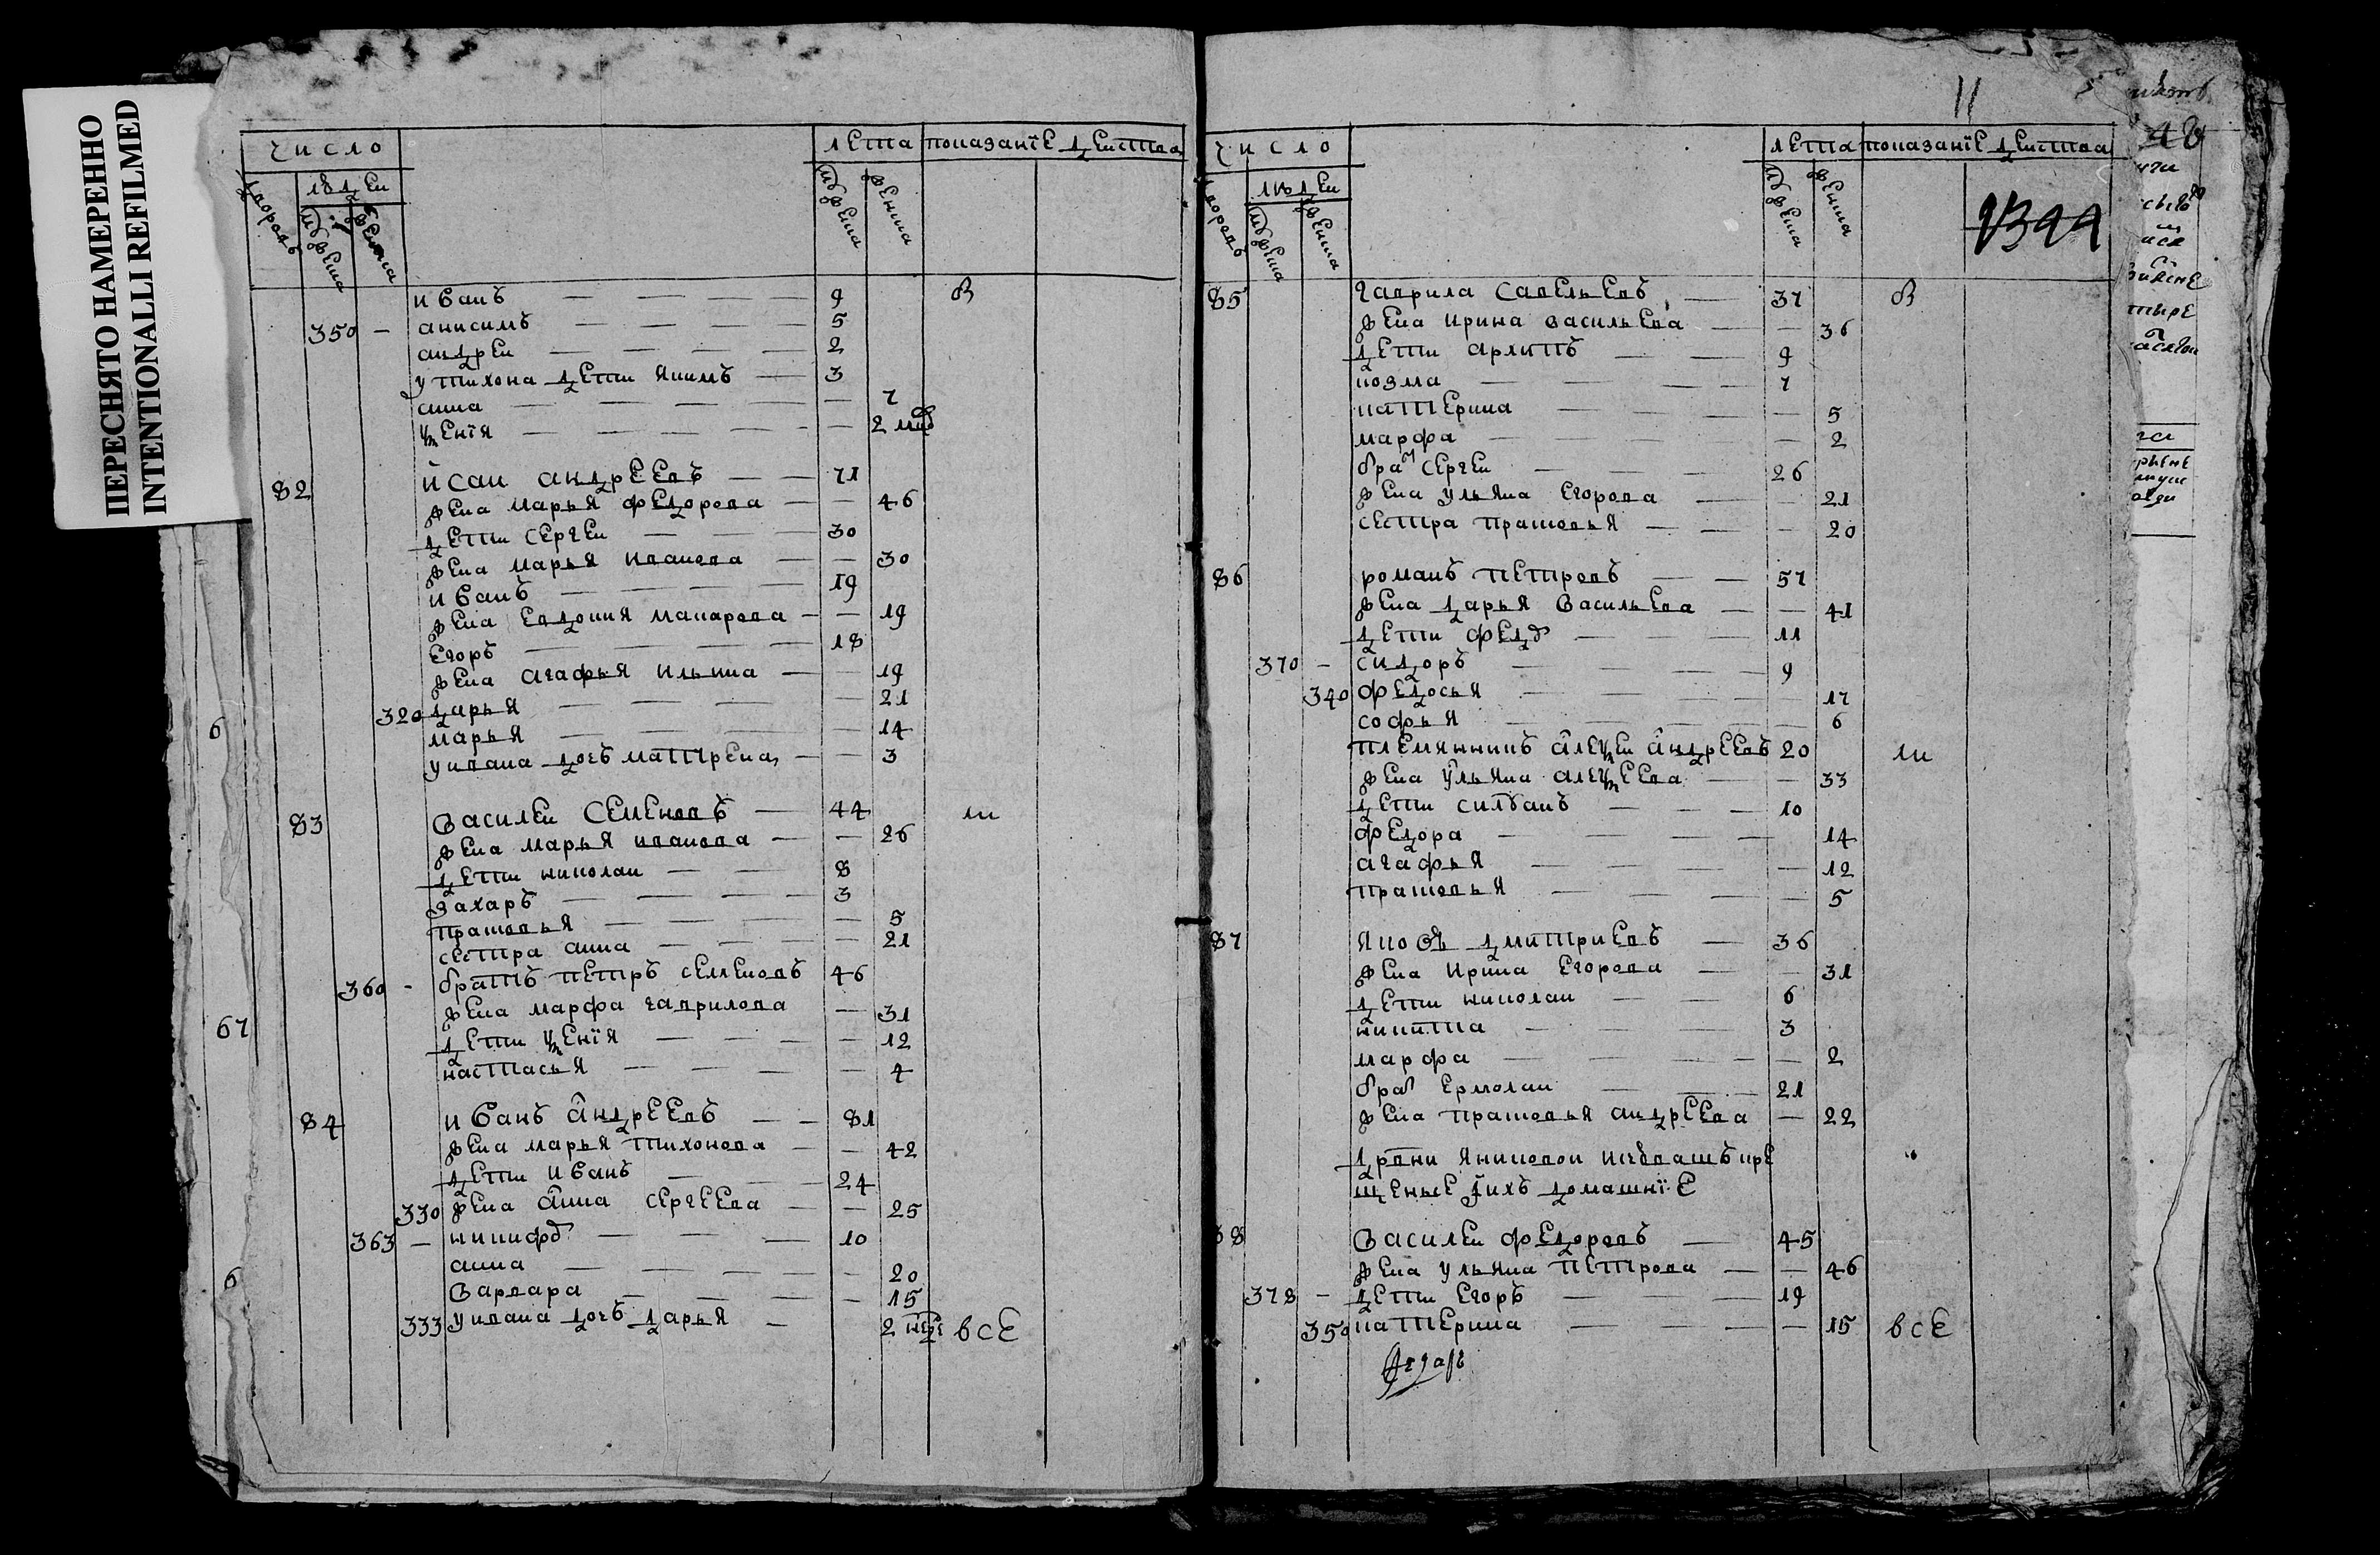 ПЕРЕСНЯТО НАМЕРЕННО
INTENTIONALLI REFILMED
число лета показанїе действа
дворовъ людей мужеска женска мужеска женска
Иванъ 9 в
350 - анисимъ 5
андрей 2
у тихона дети якимъ 3
анна 7
ѯенїя 2 мѣ
82 исаи андреевъ 71
жена марья федорова 46
дети сергеи 30
жена марья иванова 30
иванъ 19
жена евдокия макарова 19
егоръ 18
жена агафья ильина 19
320 дарья 21
марья 14
у ивана дочь матрена 3
83 Василеи Семеновъ 44 ш
жена марья иванова 26
дети николаи 8
захаръ 3
прасковья 5
сестра анна 21
360 - братъ петръ семеновъ 46
жена марфа гаврилова 31
дети ѯенїя 12
настасья 4
84 иванъ андреевъ 81
жена марья тихонова 42
дети иванъ 24
330 жена анна сергеева 25
363 - никифо 10
анна 20
Варвара 15
333 у ивана дочь дарья 2 неде все
6
67
6
11
число лета показанїе действа
дворовъ людей мужеска женска мужеска женска
85 гаврила Савельевъ 37 в
жена ирина васильева 36
дети архипъ 9
козма 7
катерина 5
марфа 2
брат сергеи 26
жена ульяна егорова 21
сестра прасковья 20
86 романъ петровъ 57
жена дарья Васильева 41
дети федо 11
370 - сидоръ 9
340 федосья 17
софья 6
племянникъ алеѯеи андреевъ 20 ш
жена ульяна алеѯеева 33
дети силванъ 10
федора 14
агафья 12
прасковья 5
87 яковъ дмитриевъ 36
жена ирина егорова 31
дети николаи 6
никита 3
марфа 2
бра ермолаи 21
жена прасковья андреева 22
дрвни якимовои
щеные ихъ домашнїе
88 Василеи федоровъ 45
жена ульяна петрова 46
378 - дети егоръ 19
350 катерина 15 все